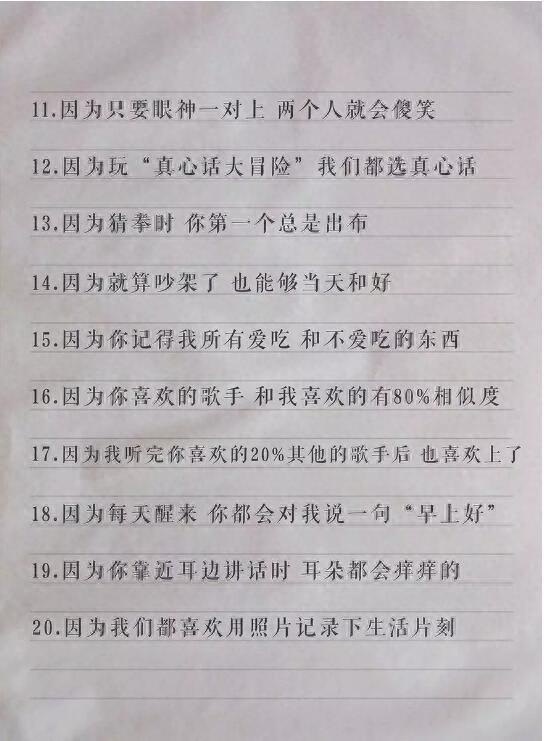 11.因为只要眼神一对上 两个人就会傻笑
12.因为玩“真心话大冒险”我们都选真心话
13.因为猜拳时 你第一个总是出布
14.因为就算吵架了 也能够当天和好
15.因为你记得我所有爱吃 和不爱吃的东西
16.因为你喜欢的歌手 和我喜欢的有80%相似度
17.因为我听完你喜欢的20%其他的歌手后 也喜欢上了
18.因为每天醒来 你都会对我说一句“早上好”
19.因为你靠近耳边讲话时 耳朵都会痒痒的
20.因为我们都喜欢用照片记录下生活片刻